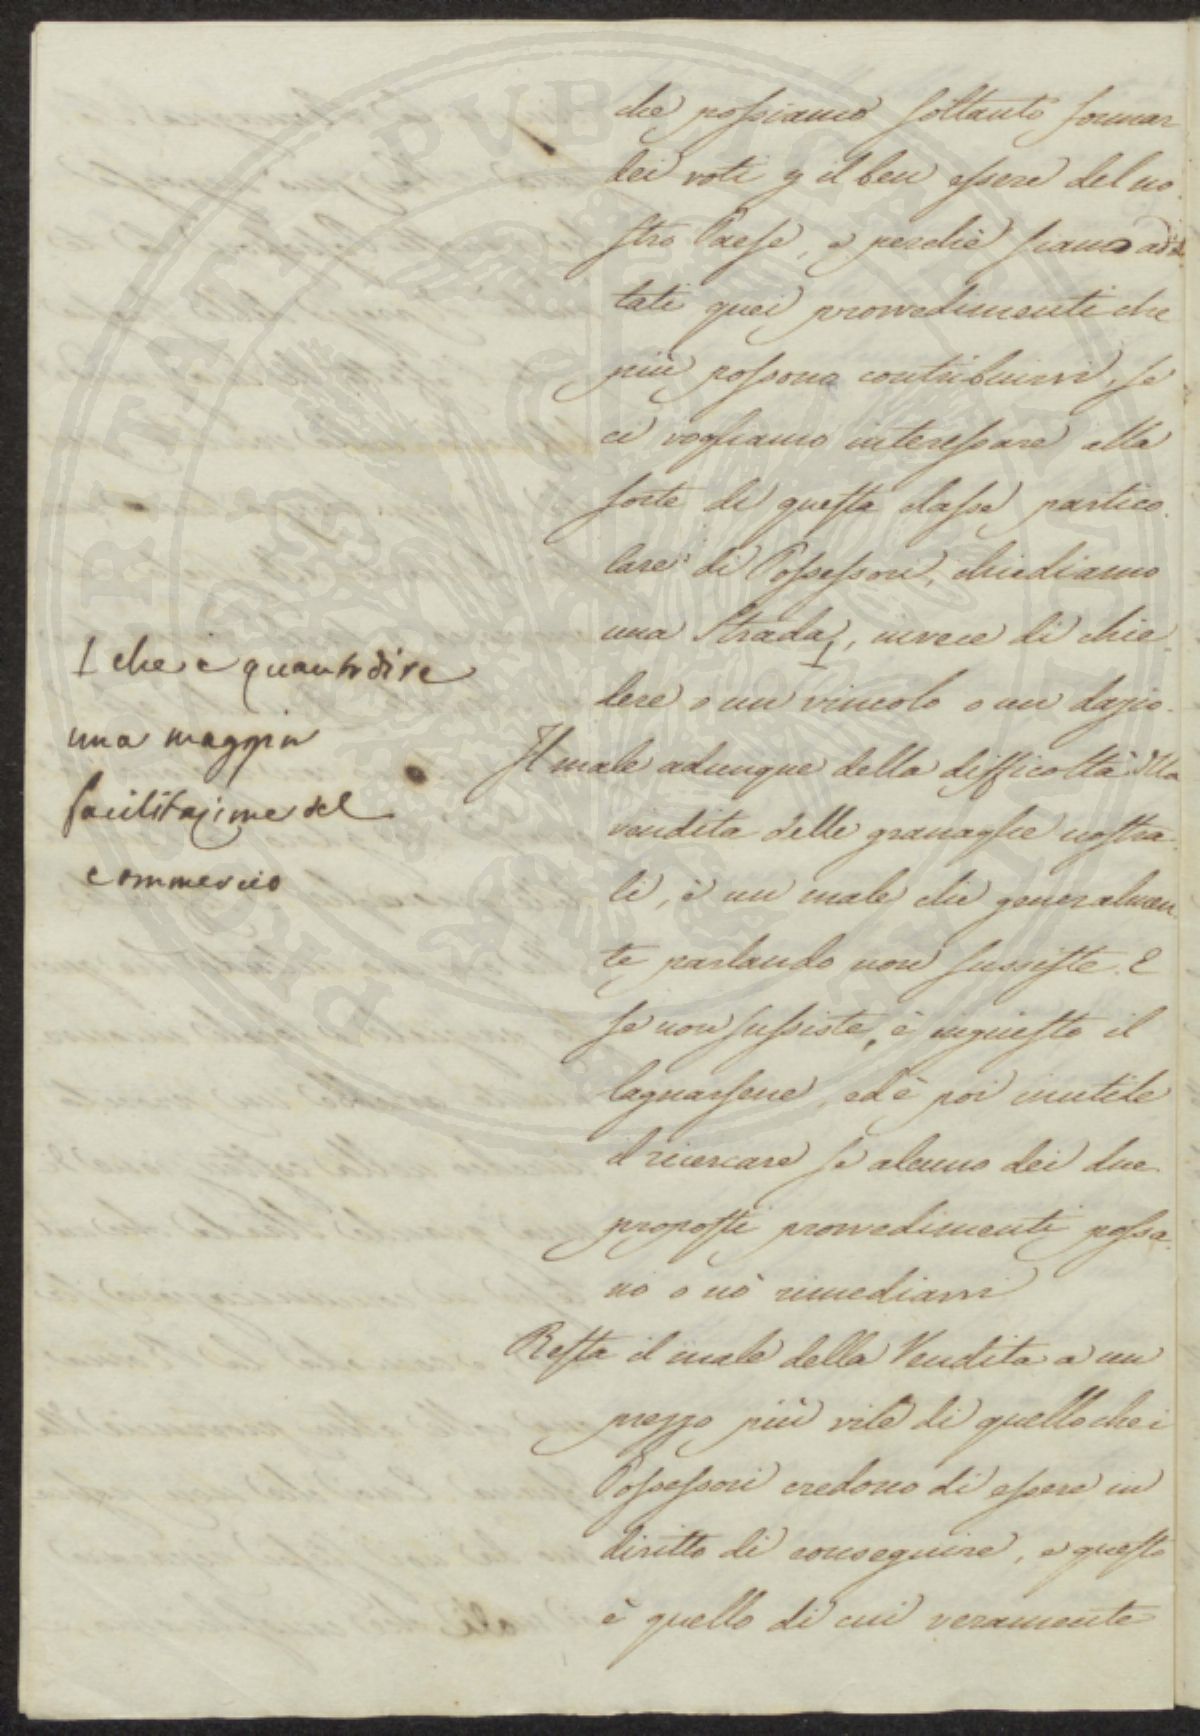 che possiamo soltanto formar
dei voti p il ben essere del no-
stro Paese, e perchè siano adot-
tati quei provvedimenti che
più possono contribuirvi, se
ci vogliamo interessare alla
sorte di questa classe partico-
lare di Possessori, chiediamo
una Strada, invece di chie-
dere o un vincolo o un dazio.
Il male adunque della difficoltà della
vendita delle granaglie nostra-
li, è un male che generalmen-
te parlando non sussiste. E
se non sussiste, è ingiusto il
lagnarsene, ed è poi inutile
il ricercare se alcuno dei due
proposti provvedimenti possa-
no o nò rimediarvi
Resta il male della Vendita a un
prezzo più vile di quello che i
Possessori credono di essere in
diritto di conseguire, e questo
è quello di cui veramente
che è quanto dire
una maggior
facilitazione del
commercio